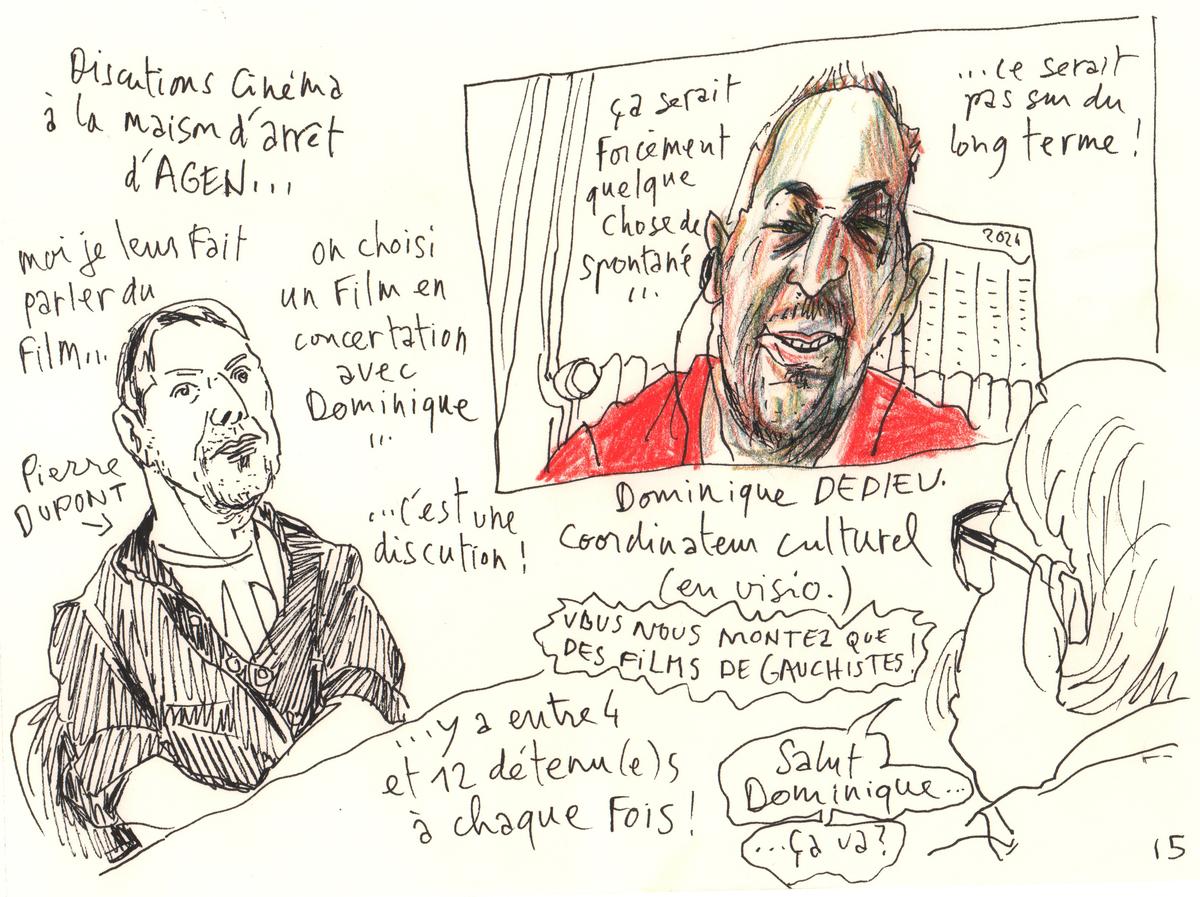 Discutions Cinéma
à la maison d'arrêt
d'AGEN...
moi je leur fait
parler du
film...
on choisi
un film en
concertation
avec
Dominique
...
Pierre
DUPONT
...c'est une
discution!
ça serait
forcément
quelque
chose de
spontané
...
...ce serait
pas sur du
long terme!
2024
Dominique DEDIEU.
coordinateur culturel
(en visio.)
VOUS NOUS MONTEZ QUE
DES FILMS DE GAUCHISTES!
...y a entre 4
et 12 détenu(e)s
à chaque fois!
Salut
Dominique...
...ça va?
15